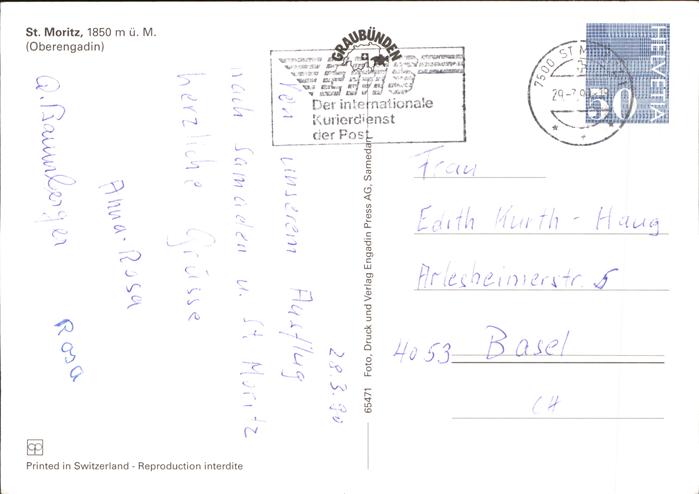 St. Moritz, 1850 m ü. M.
(Oberengadin)
GRAUBÜNDEN
EMS
Der internationale
Kurierdienst
der Post
7500 ST M
HELVETIA
50
28.3.90
Von unserem Ausflug
nach Samaden u. St Moritz
herzliche Grüsse
Anna-Rosa
A. Baumberger
Rosa
65471 Foto, Druck und Verlag Engadin Press AG, Samedan
Frau
Edith Kurth - Haug
Arlesheimerstr. 5
4053 Basel
CH
Printed in Switzerland - Reproduction interdite